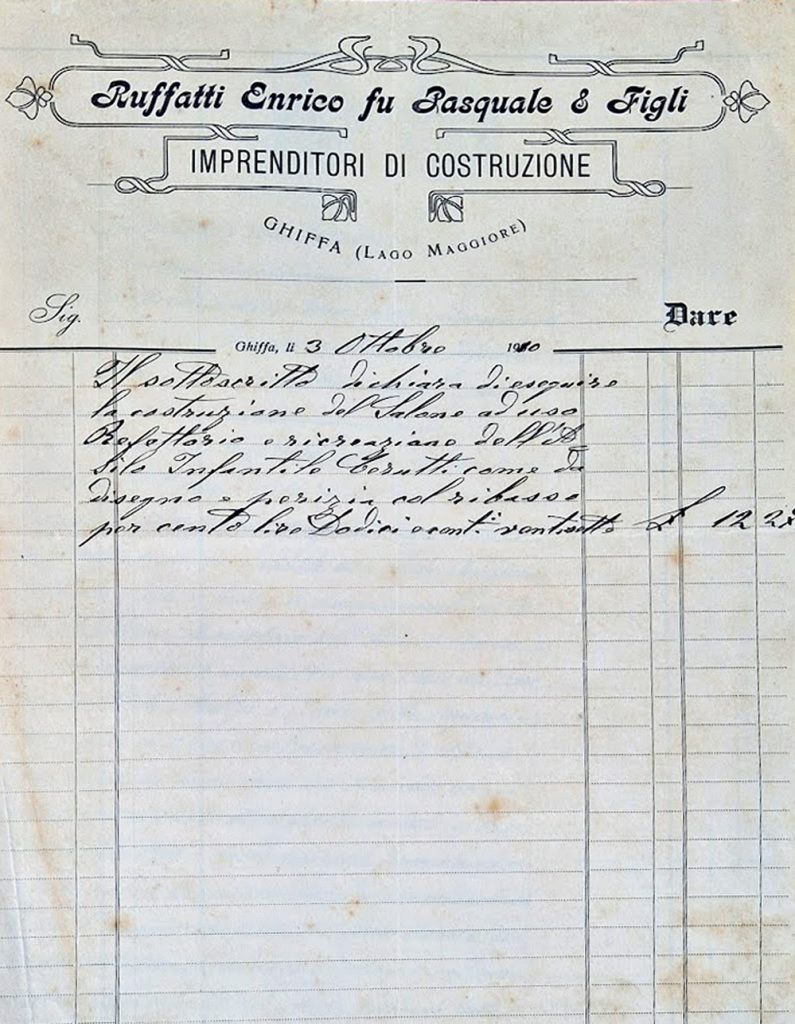 Ruffatti Enrico fu Pasquale & Figli
IMPRENDITORI DI COSTRUZIONE
GHIFFA (LAGO MAGGIORE)
Sig.
Dare
Ghiffa, li 3 Ottobre 1910
Il sottoscritto dichiara di eseguire
la costruzione del Salone ad uso
Refettorio e ricreazione dell'A=
silo Infantile Cerutti come da
disegno e perizia col ribasso
per cento lire Dodici e cent: ventisette £ 12 27